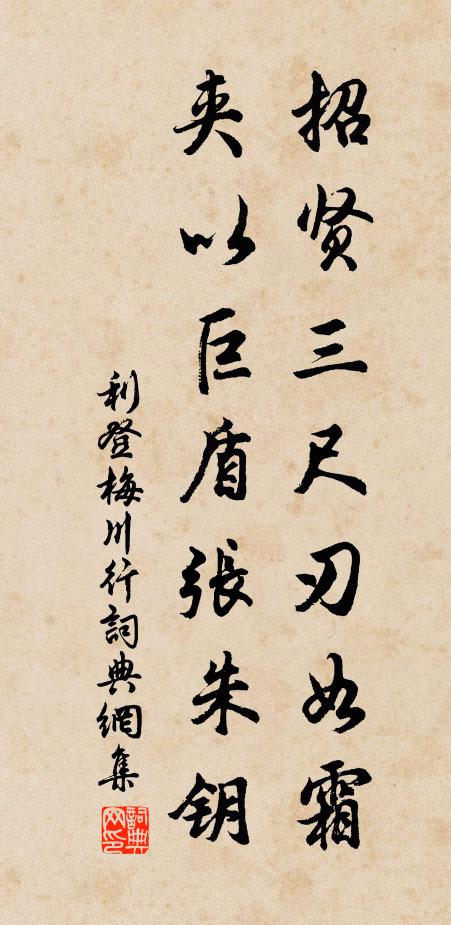 招贤三尺刃如霜
夹以巨盾張朱钥
利登梅川行詞典網集
詞典网印